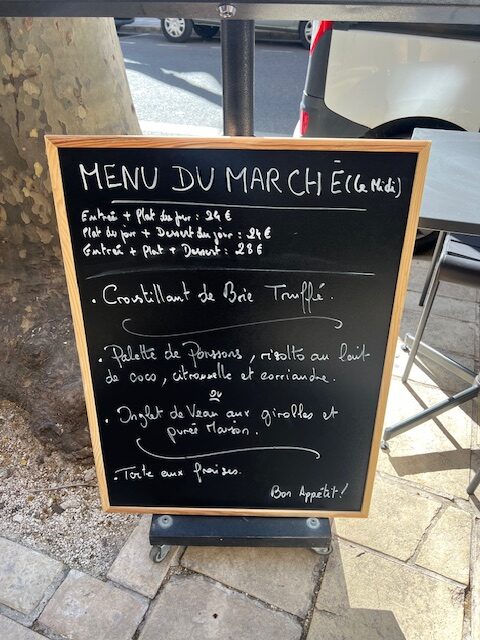 MENU DU MARCHÉ (Le Midi)
Entreé + Plat du jour : 24 €
Plat du jour + Dessert du jour : 24 €
Entreé + Plat + Dessert : 28 €
. Croustillant de Brie Truffé.
. Palette de Poissons, risotto au lait
de coco, citronnelle et corriandre.
ou
. Onglet de Veau aux girolles et
purée Maison.
. Tarte aux fraises.
Bon Appétit !